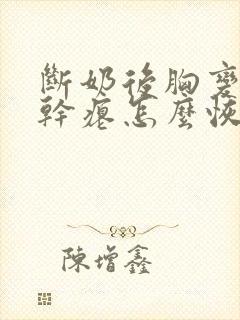 斷奶後胸變
幹癟怎麼恢
陳增鑫